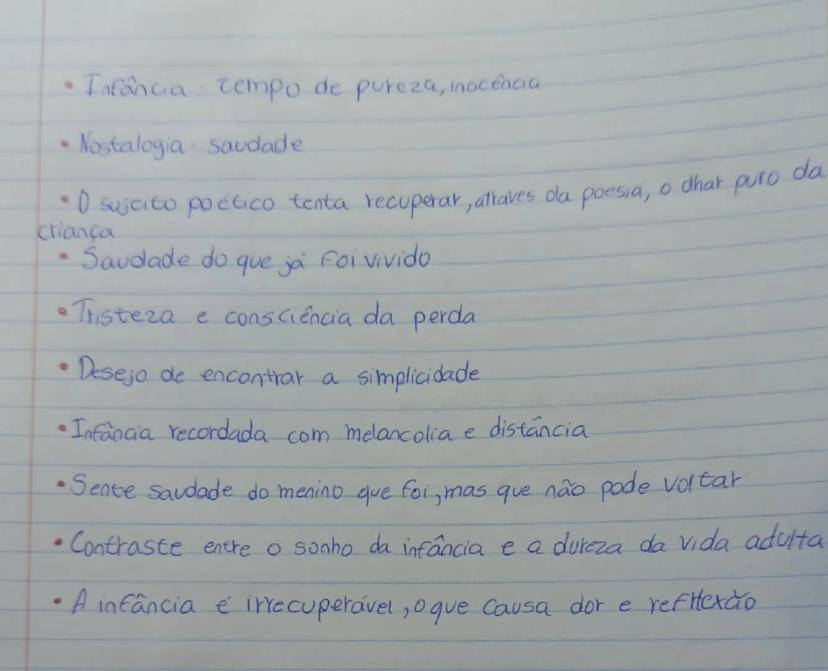 • Infância - tempo de pureza, inocência
• Nostalogia - saudade
• O sujeito poético tenta recuperar, atraves da poesia, o olhar puro da
criança
• Saudade do que já foi vivido
• Tristeza e consciência da perda
• Desejo de encontrar a simplicidade
• Infância recordada com melancolia e distância
• Sente saudade do menino que foi, mas que não pode voltar
• Contraste entre o sonho da infância e a dureza da vida adulta
• A infância é irrecuperável, o que causa dor e reflexão